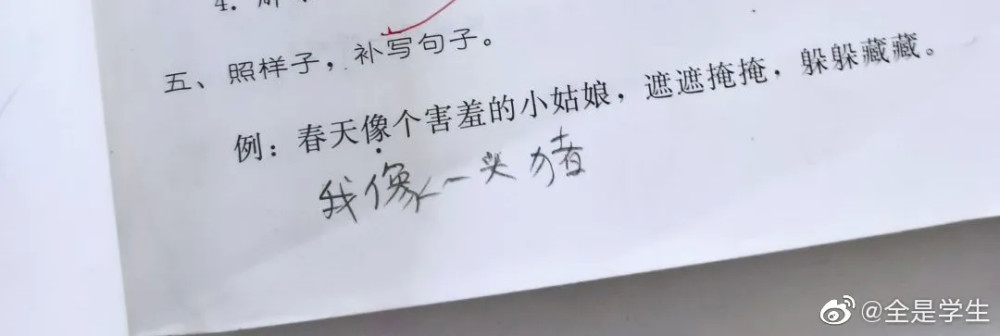 五、照样子，补写句子。
例：春天像个害羞的小姑娘，遮遮掩掩，躲躲藏藏。
我像一头猪
@全是学生